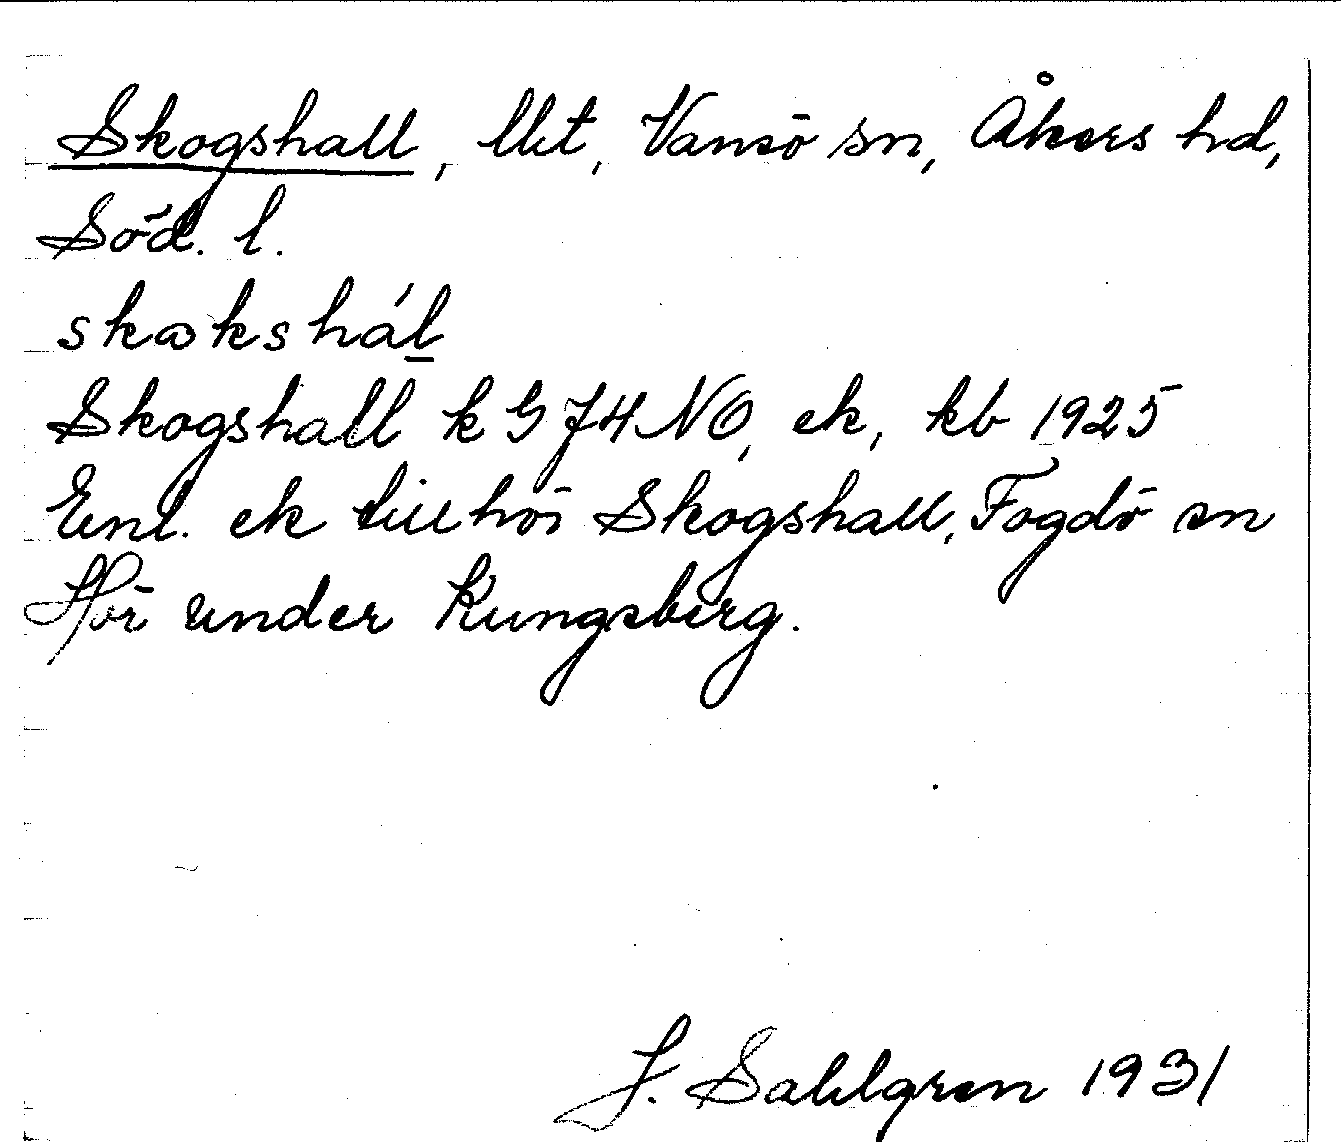 Skogshall, lht, Vansö sn, Åkers hd,
Söd. l.
skɷkshál̲
Skogshall k G 74 NO, ek, kb 1925
Enl. ek tillhör Skogshall, Fogdö sn
Hör under Kungsberg.
J. Sahlgren 1931